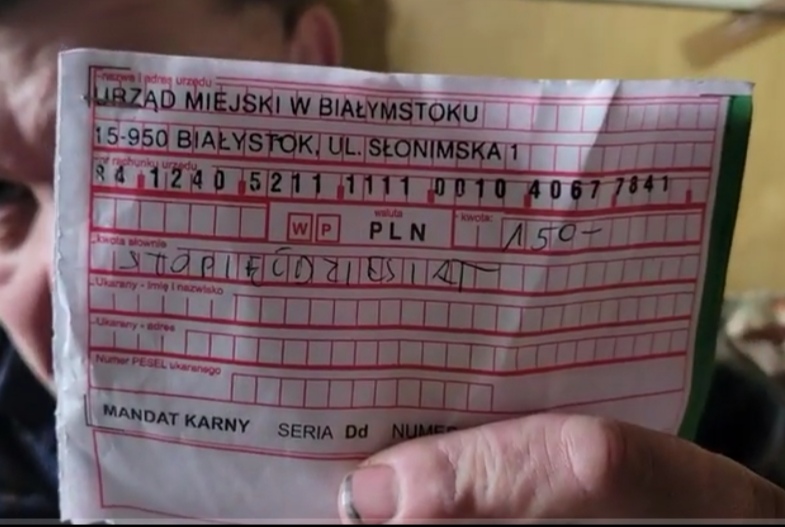 nazwa i adres urzędu
URZĄD MIEJSKI W BIAŁYMSTOKU
15-950 BIAŁYSTOK, UL. SŁONIMSKA 1
nr rachunku urzędu
84 1240 5211 1111 0010 4067 7841
W P waluta PLN kwota: 150-
kwota słownie
STOPIĘĆDZIESIĄT
Ukarany - imię i nazwisko
Ukarany - adres
Numer PESEL ukaranego
MANDAT KARNY SERIA Dd NUMER